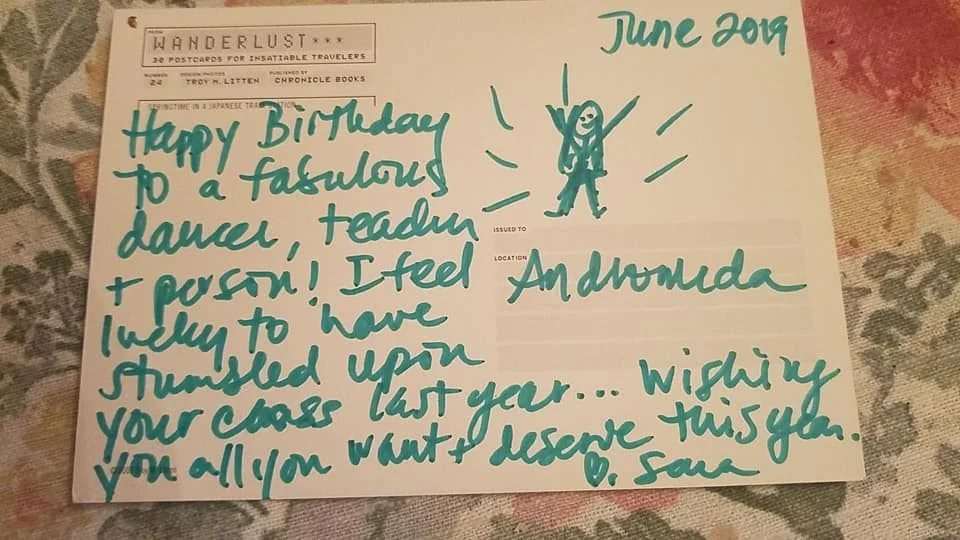 June 2019
FROM
WANDERLUST***
30 POSTCARDS FOR INSATIABLE TRAVELERS
NUMBER DESIGN/PHOTOS PUBLISHED BY
24 TROY M. LITTEN CHRONICLE BOOKS
SPRINGTIME IN A JAPANESE
Happy Birthday
to a fabulous
dancer, teacher
+ person! I feel
lucky to have
stumbled upon
your class last year... wishing
you all you want + deserve this year.
♡. Sara
ISSUED TO
LOCATION
Andromeda